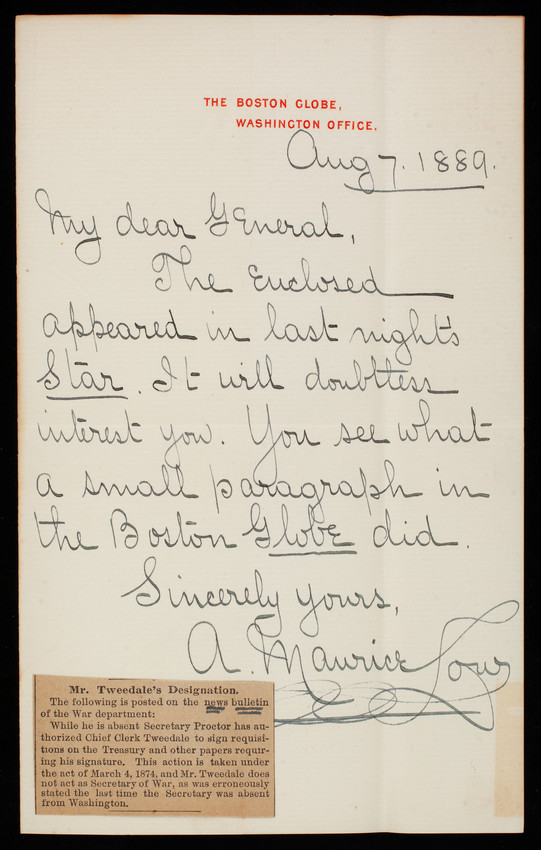 THE BOSTON GLOBE,
WASHINGTON OFFICE.
Aug 7. 1889.
My dear General,
The Enclosed
appeared in last night's
Star. It will doubtless
interest you. You see what
a small paragraph in
the Boston Globe did.
Sincerely yours,
A. Maurice Low
Mr. Tweedale's Designation.
The following is posted on the news bulletin
of the War department:
While he is absent Secretary Proctor has au-
thorized Chief Clerk Tweedale to sign requisi-
tions on the Treasury and other papers requir-
ing his signature. This action is taken under
the act of March 4, 1874, and Mr. Tweedale does
not act as Secretary of War, as was erroneously
stated the last time the Secretary was absent
from Washington.